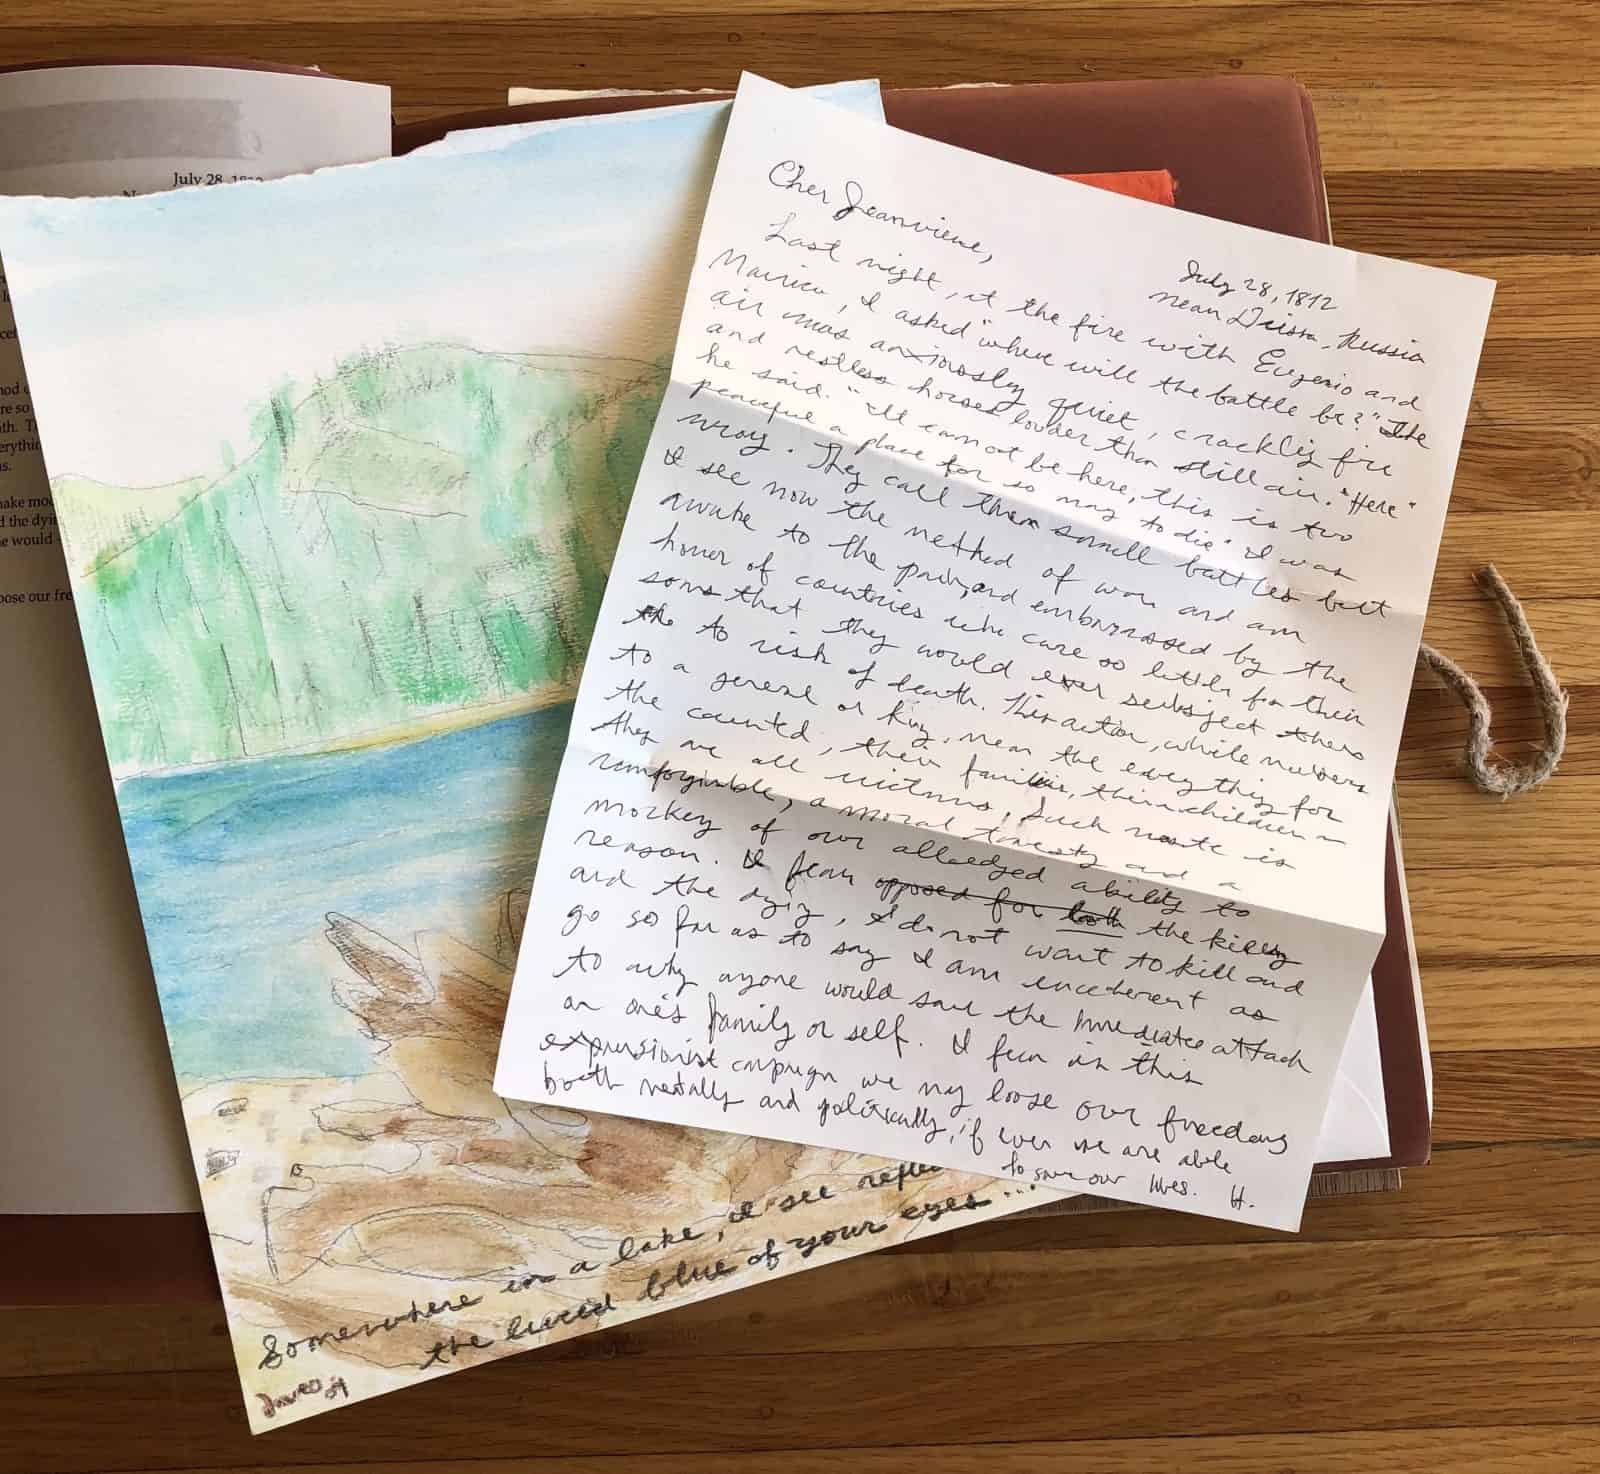 July 28, 18
Cher Jeanviene,
July 28, 1812
near Drissa, Russia
Last night, at the fire with Eugenio and
I asked "where will the battle be?" The
air was anxiously quiet, crackling fire
and restless horses louder than still air. "Here"
he said. "It cannot be here, this is two
peaceful a place for so many to die" I was
wrong. They call them small battles but
I see now the method of war and am
awake to the pain, and embarrassed by the
honor of countries who care so little for their
sons that they would ever subject
to risk of death. This action, while numbers
to a general or king, mean the everything for
the counted, their families, their children
they are all victims, Such waste is
unforgivable, a moral travesty and a
mockey of our alledged ability to
reason. I fear opposed for both the killing
and the dying, I do not want to kill and
go so far as to say I am incoherent as
to why anyone would save the immediate attack
on one's family or self. I fear in this
expansionist campaign we may loose our freedoms
both mentally and politically, if even we are able
to save our lives. H.
Somewhere in a lake, I see refle
the lucid blue of your eyes ...
od
re so
th.
erythin
s.
ake mo
d the dyi
e would
pose our fre